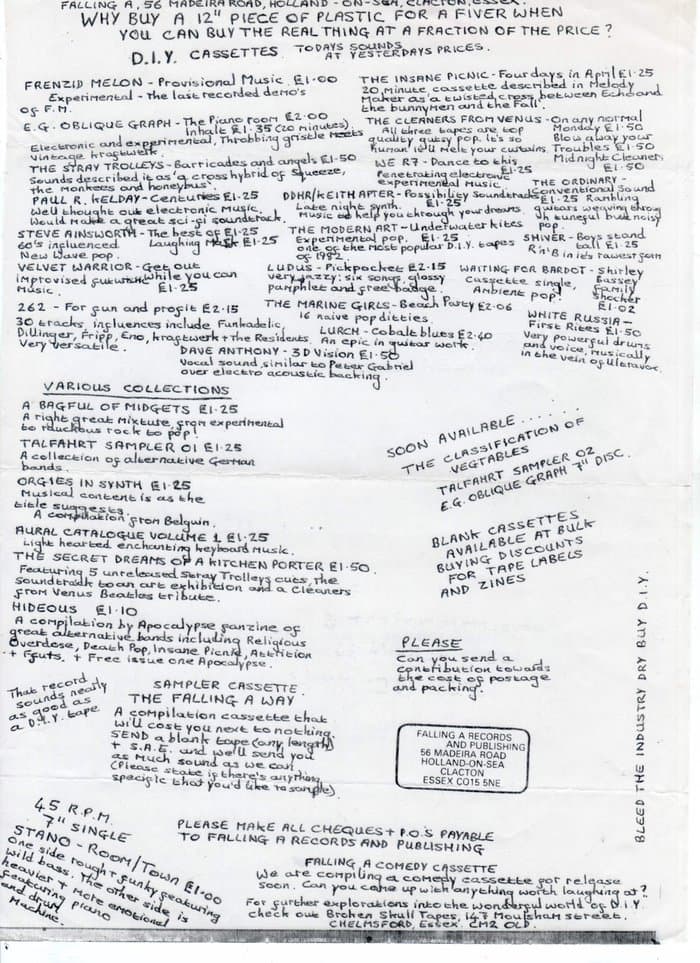 FALLING A, 56 MADEIRA ROAD, HOLLAND-ON-SEA, CLACTON, ESSEX.
WHY BUY A 12" PIECE OF PLASTIC FOR A FIVER WHEN
YOU CAN BUY THE REAL THING AT A FRACTION OF THE PRICE?
D.I.Y. CASSETTES. TODAYS SOUNDS
AT YESTERDAYS PRICES.
FRENZID MELON - Provisional Music £1·00
Experimental - The last recorded demo's
of F.M.
E.G. OBLIQUE GRAPH - The Piano room £2·00
Inhalt £1·35 (20 minutes).
Electronic and experimental, Throbbing gristle meets
vintage kraftwerk.
THE STRAY TROLLEYS - Barricades and angels £1·50
Sounds described it as 'a cross hybrid of Squeeze,
the Monkees and honeybus'.
PAUL R. KELDAY - Centuries £1·25
Well thought out electronic music.
Would make a great sci-fi soundtrack.
STEVE AINSWORTH - The best of £1·25
60's influenced Laughing Mask £1·25
New Wave pop.
VELVET WARRIOR - Get out
while you can
improvised futurist
Music. £1·25
262 - For fun and profit £2·15
30 tracks influences include Funkadelic,
Dillinger, Fripp, Eno, kraftwerk + the Residents.
Very versatile.
THE INSANE PICNIC - Four days in April £1·25
20 minute cassette described in Melody
Maker as 'a twisted cross between Echo and
the bunnymen and the Fall'.
THE CLEANERS FROM VENUS - On any normal
Monday £1·50
All three tapes are top
quality gutsy pop. It's so
human it'll melt your curtains.
Blow away your
Troubles £1·50
Midnight Cleaners
£1·50
WE R7 - Dance to this
Penetrating electronic £1·25
experimental Music.
DDHR/KEITH APTER - Possibility Soundtracks
Late night synth. £1·25
Music to help you through your dreams
THE MODERN ART - Underwater kites
Experimental pop, £1·25
one of the most popular D.I.Y. tapes
of 1982
LUDUS - Pickpocket £2·15
very jazzy; six songs, glossy
pamphlet and free badge.
THE MARINE GIRLS - Beach Party £2·06
16 naive pop ditties
LURCH - Cobalt blues £2·40
An epic in guitar work.
DAVE ANTHONY - 3D Vision £1·50
Vocal sound similar to Peter Gabriel
over electro acoustic backing.
THE ORDINARY -
Conventional Sound
£1·25 Rambling
guitars weaving through
tuneful but noisy
pop.
SHIVER - Boys stand
tall £1·25
R'n'B in its rawest form
WAITING FOR BARDOT - Shirley
Bassey
Family
Shocker
£1·02
Cassette single,
Ambient pop!
WHITE RUSSIA -
First Rites £1·50
Very powerful drums
and voice, musically
in the vein of Ultravox.
VARIOUS COLLECTIONS
A BAGFUL OF MIDGETS £1·25
A right great mixture, from experimental
to rauckous rock to pop!
TALFAHRT SAMPLER 01 £1·25
A collection of alternative German
bands.
ORGIES IN SYNTH £1·25
Musical content is as the
title suggests.
A compilation from Belguin.
AURAL CATALOGUE VOLUME 1 £1·25
Light hearted enchanting keyboard music.
THE SECRET DREAMS OF A KITCHEN PORTER £1·50.
Featuring 5 unreleased Stray Trolleys cuts, the
Soundtrack to an art exhibition and a Cleaners
from Venus Beatles tribute.
HIDEOUS £1·10
A compilation by Apocalypse fanzine of
great alternative bands including Religious
Overdose, Death Pop, Insane Picnic, Attrition
+ Ffuts. + Free issue one Apocalypse.
SOON AVAILABLE.......
THE CLASSIFICATION OF
VEGTABLES
TALFAHRT SAMPLER 02
E.G. OBLIQUE GRAPH 7" DISC.
BLANK CASSETTES
AVAILABLE AT BULK
BUYING DISCOUNTS
FOR TAPE LABELS
AND ZINES
PLEASE
Can you send a
contribution towards
the cost of postage
and packing.
That record
sounds nearly
as good as
a D.I.Y tape
SAMPLER CASSETTE.
THE FALLING A WAY
A compilation cassette that
will cost you next to nothing.
SEND a blank tape (any length)
+ S.A.E. and we'll send you
as much sound as we can
(Please state if there's anything
specific that you'd like to sample)
FALLING A RECORDS
AND PUBLISHING
56 MADEIRA ROAD
HOLLAND-ON-SEA
CLACTON
ESSEX CO15 5NE
BLEED THE INDUSTRY DRY BUY D.I.Y.
45 R.P.M.
7" SINGLE
STANO - ROOM/TOWN £1·00
One side rough funky featuring
wild bass. The other side is
heavier + more emotional
featuring piano
and drum
Machine.
PLEASE MAKE ALL CHEQUES + P.O.'S PAYABLE
TO FALLING A RECORDS AND PUBLISHING
FALLING A COMEDY CASSETTE
We are compiling a comedy cassette for release
soon. Can you come up with anything worth laughing at?
For further explorations into the wonderful world of D.I.Y
check out Broken Skull Tapes, 147 Moulsham street.
CHELMSFORD, Essex. CM2 OLD.